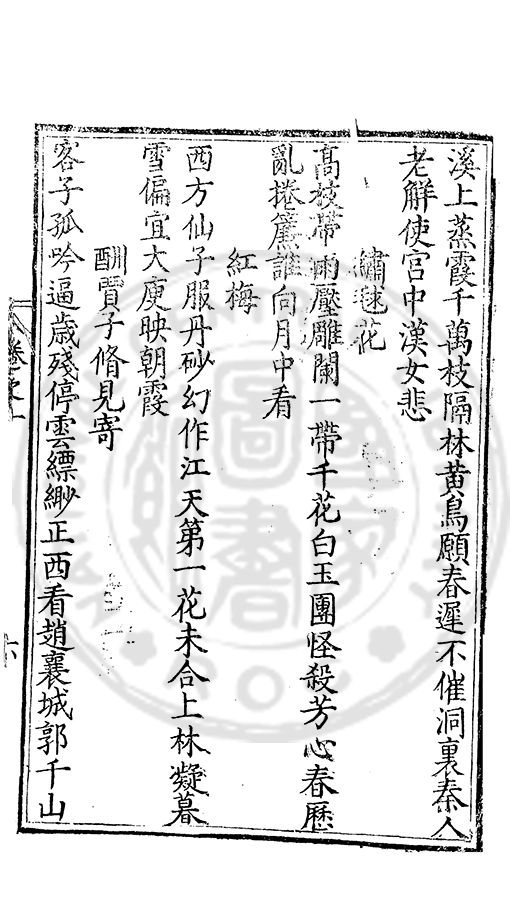 溪上蒸霞千萬枝隔林黄鳥願春遲不催洞裏秦人
老解使宮中漢女悲
繡毬花
高枝帶雨壓雕闌一帶千花白玉團怪殺芳心春歷
亂捲簾誰向月中看
紅梅
西方仙子服丹砂幻作江天第一花未合上林凝暮
雪偏宜大庾映朝霞
酬賈子脩見寄
客子孤吟逼歲殘停雲縹緲正西看趙襄城郭千山
六
圖書